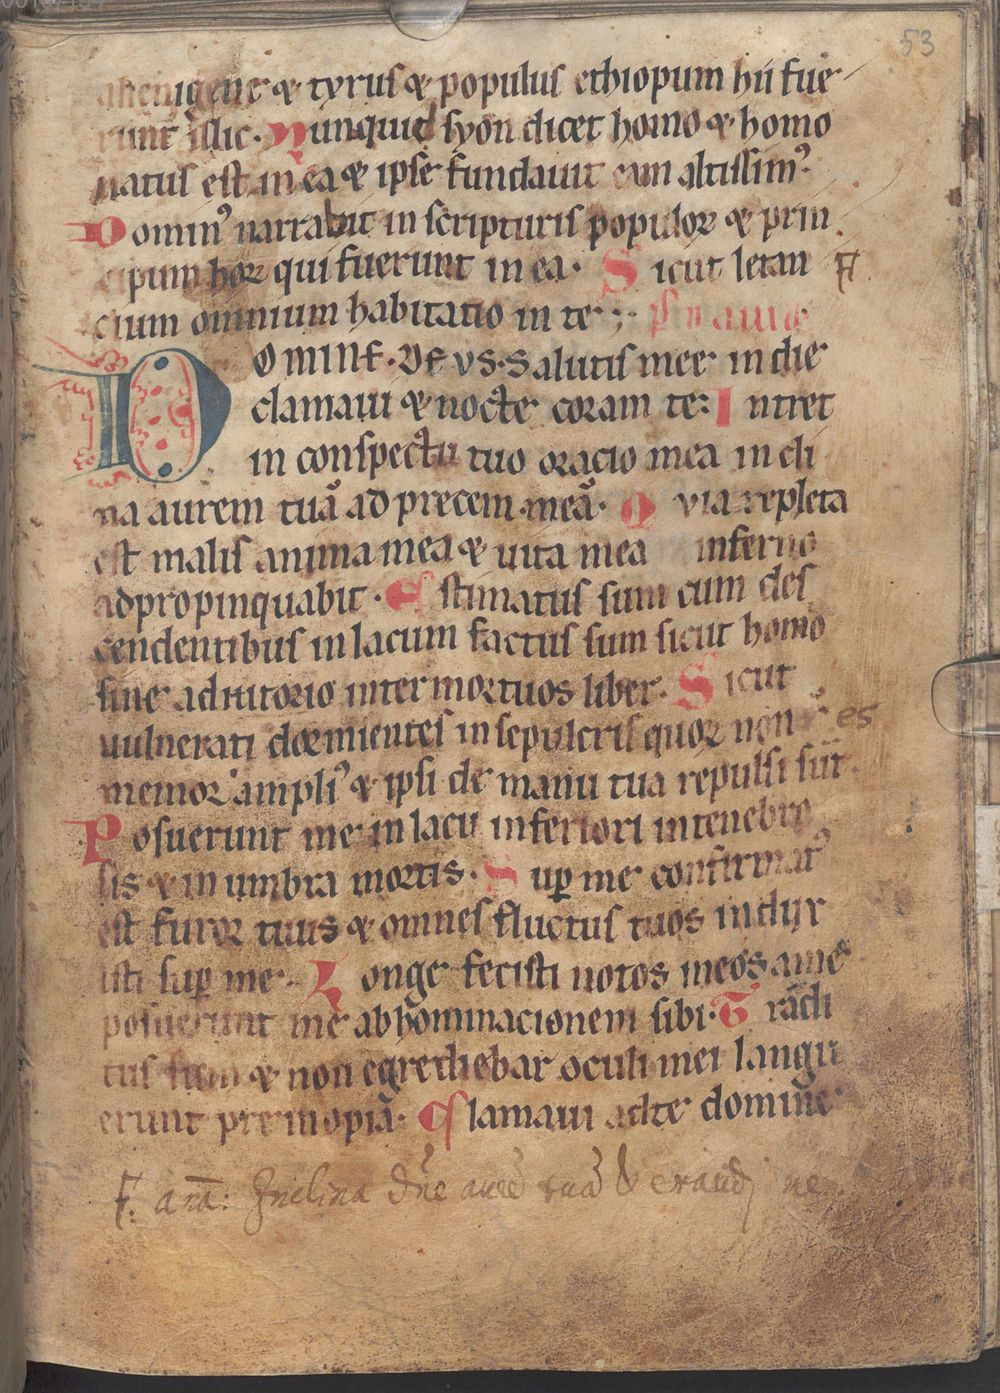 53
alienigene & tyrus & populus ethiopum hii fue
runt illic. Nunquid syon dicet homo & homo
natus est in ea & ipse fundauit eam altissim⁹.
Domin⁹ narrabit in scripturis populoꝝ & prin
cipum hoꝝ qui fuerunt in ea. Sicut letan
cium omnium habitatio in te;
DOMINE. DEVS. Salutis mee in die
clamaui & nocte coram te: Intret
in conspectu tuo oracio mea incli
na aurem tuā ad precem meā. Quia repleta
est malis anima mea & uita mea inferno
adpropinquabit. Estimatus sum cum des
cendentibus in lacum factus sum sicut homo
sine adiutorio inter mortuos liber. Sicut
uulnerati dormientes in sepulcris quoꝝ non es
memor ampli⁹ & ipsi de manu tua repulsi sūt.
Posuerunt me in lacu inferiori in tenebro
sis & in umbra mortis. Suꝑ me confirmat⁹
est furor tuus & omnes fluctus tuos indux
isti suꝑ me. Longe fecisti notos meos a me
posuerunt me abhominacionem sibi. Tradi
tus sum & non egrediebar oculi mei langu
erunt pre inopiā. Clamaui ad te domine
F. anā: Inclina dn̄e aurē tuā & exaudi me